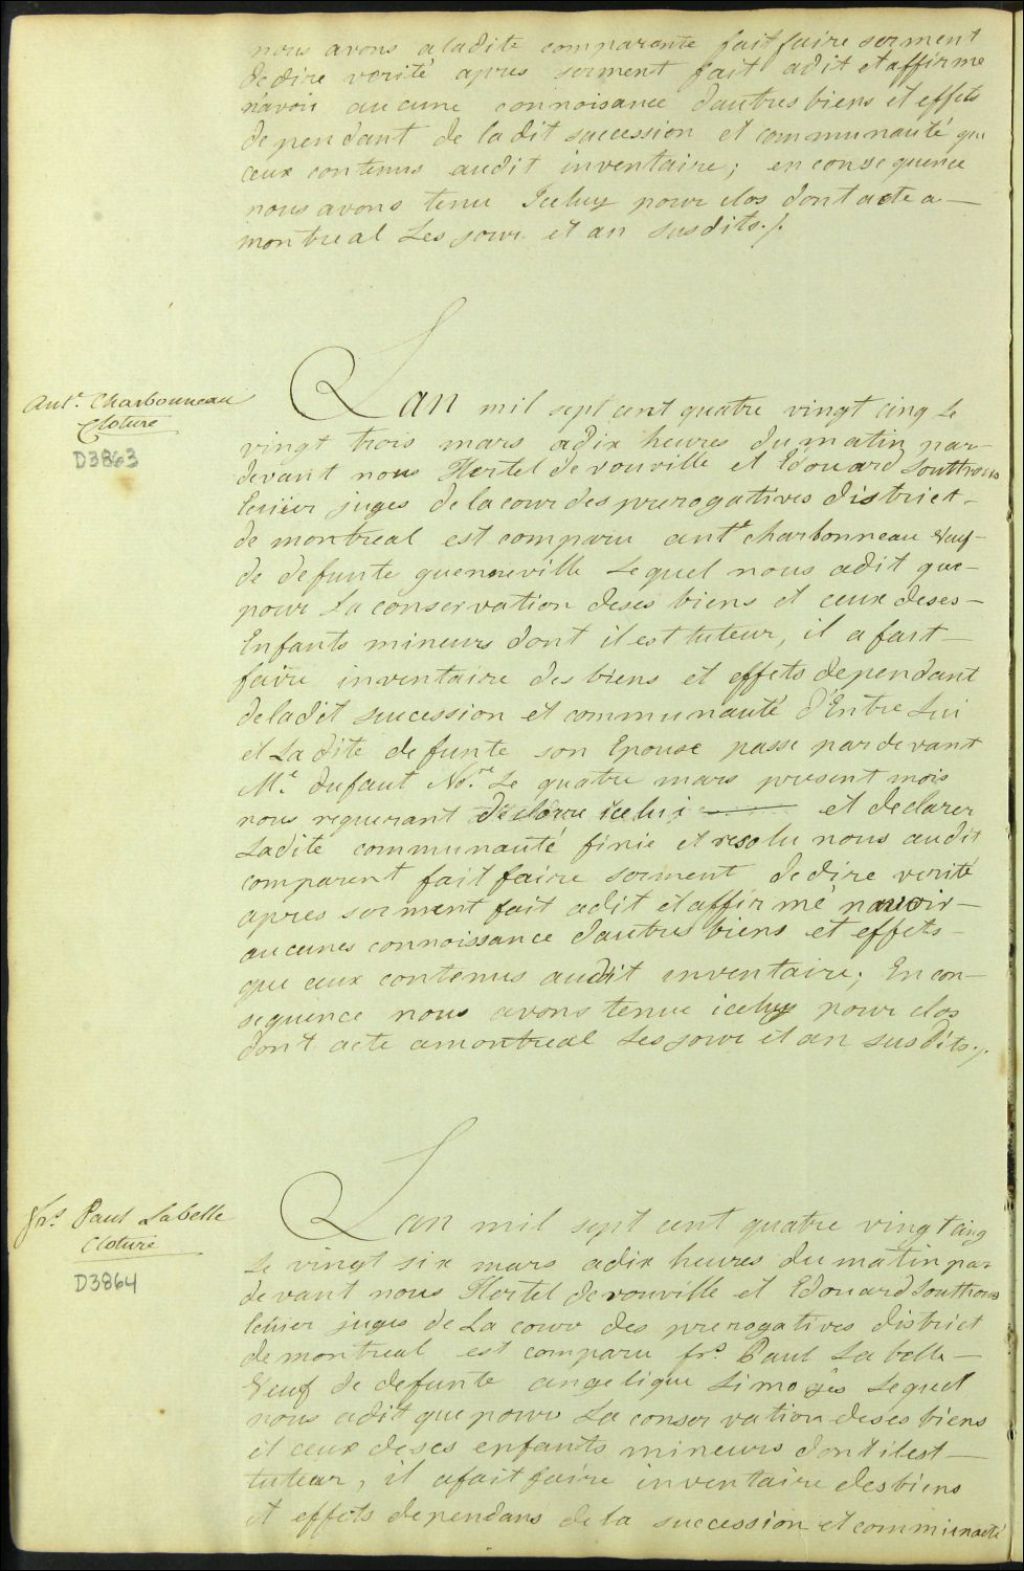 nous avons aladite comparante fait faire serment
de dire verité apres serment fait adit et affirme
n'avoir aucune connoisance dautres biens et effets
dependant de ladit succession et communauté que
ceux contenus audit inventaire; en consequence
nous avons tenu Iceluy pour clos dont acte a
montreal Les jour et an susdits./.
Lan mil sept cent quatre vingt cinq Le
Ant.e Charbonneau
Cloture
D3863
vingt trois mars adix heures du matin par
devant nous Hertel de rouville et Edouard Southrous
juges de la cour des prerogatives district
de montreal est comparu ant.e charbonneau Veuf
de defunte guenneville Lequel nous adit que
pour La conservation deses biens et ceux deses
Enfants mineurs dont il est tuteur, il a fait
faire inventaire des biens et effets dependant
deladit succession et communauté d'Entre Lui
et La dite defunte son Epouse passe pardevant
M.e dufaut No.re Le quatre mars present mois
nous requerant de clorre icelui et declarer
Ladite communauté finie et resolu nous audit
comparent fait faire serment de dire verité
apres serment fait adit et affirmé navoir
aucunes connoissance dautres biens et effets
que ceux contenus audit inventaire; En con-
sequence nous avons tenue iceluy pour clos
dont acte amontreal Les jour et an susdits./.
Lan mil sept cent quatre vingt cinq
frs Paul Labelle
Cloture
D3864
Le vingt six mars adix heures du matin par
devant nous Hertel derouville et Edouard Southrous
juges de La cour des prerogatives district
de montreal est comparu frs Paul Labelle
Veuf de defunte angelique Limoges Lequel
nous adit que pour La conservation deses biens
et ceux deses enfants mineurs dont ilest
tuteur, il afait faire inventaire desbiens
et effets dependans de la succession et communauté